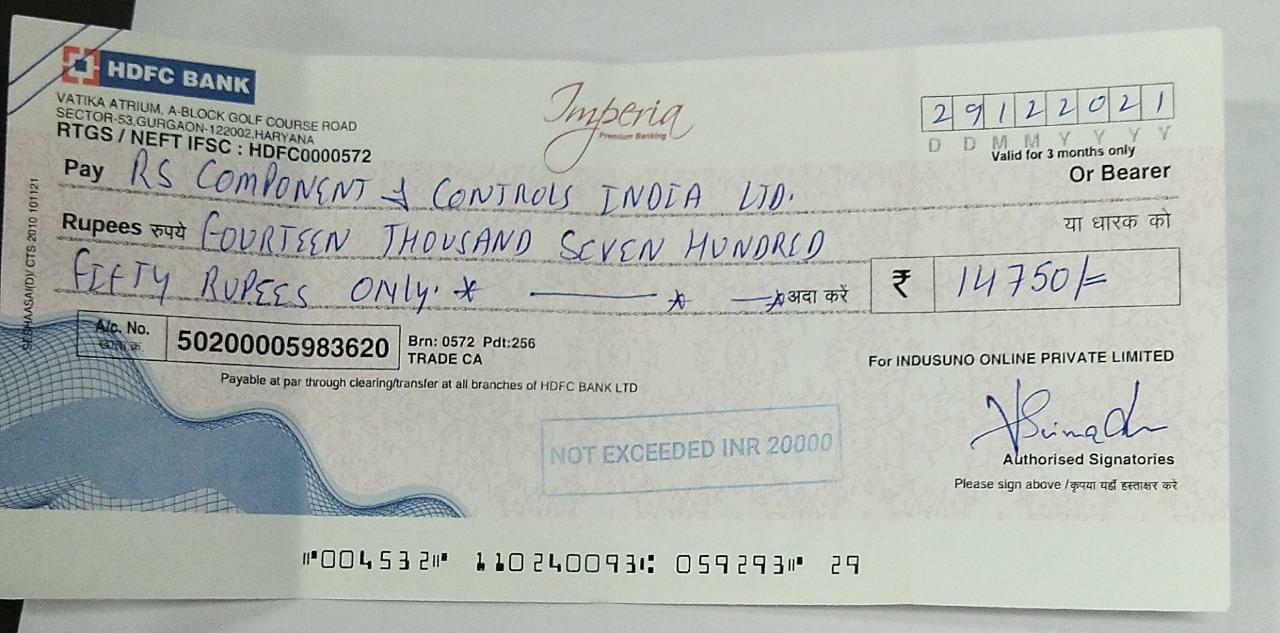 HDFC BANK
VATIKA ATRIUM, A-BLOCK GOLF COURSE ROAD
SECTOR-53,GURGAON-122002,HARYANA
RTGS / NEFT IFSC : HDFC0000572
Imperia
Premium Banking
29122021
D D M M Y Y Y Y
Valid for 3 months only
Pay RS COMPONENT & CONTROLS INDIA LTD.
Or Bearer
या धारक को
Rupees रुपये FOURTEEN THOUSAND SEVEN HUNDRED
FIFTY RUPEES ONLY. * — * — * अदा करें
₹ 14750/=
A/c. No.
50200005983620
Brn: 0572 Pdt:256
TRADE CA
Payable at par through clearing/transfer at all branches of HDFC BANK LTD
For INDUSUNO ONLINE PRIVATE LIMITED
NOT EXCEEDED INR 20000
Authorised Signatories
Please sign above /कृपया यहाँ हस्ताक्षर करे
CTS 2010 101121
⑈004532⑈ 110240093⑆ 059293⑈ 29